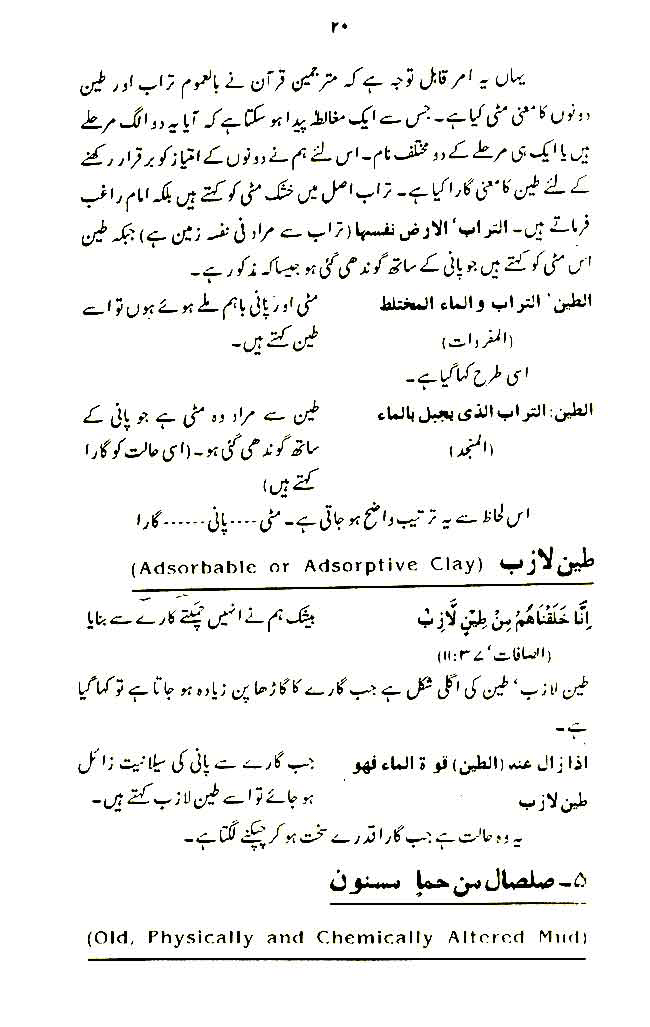 ۲۰
یہاں یہ امر قابل توجہ ہے کہ مترجمین قرآن نے بالعموم تراب اور طین
دونوں کا معنی مٹی کیا ہے۔ جس سے ایک مغالطہ پیدا ہو سکتا ہے کہ آیا یہ دو الگ مرحلے
ہیں یا ایک ہی مرحلے کے دو مختلف نام۔ اس لئے ہم نے دونوں کے امتیاز کو برقرار رکھنے
کے لئے طین کا معنی گارا کیا ہے۔ تراب اصل میں خشک مٹی کو کہتے ہیں بلکہ امام راغب
فرماتے ہیں۔ التراب' الارض نفسها (تراب سے مراد فی نفسہ زمین ہے) جبکہ طین
اس مٹی کو کہتے ہیں جو پانی کے ساتھ گوندھی گئی ہو جیسا کہ مذکور ہے۔
الطین' التراب والماء المختلط مٹی اور پانی باہم ملے ہوئے ہوں تو اسے
(المفردات) طین کہتے ہیں۔
اسی طرح کہا گیا ہے۔
الطین: التراب الذی یجبل بالماء طین سے مراد وہ مٹی ہے جو پانی کے
(المنجد) ساتھ گوندھی گئی ہو۔ (اسی حالت کو گارا
کہتے ہیں)
اس لحاظ سے یہ ترتیب واضح ہو جاتی ہے۔ مٹی ---- پانی ------ گارا
طین لازب (Adsorbable or Adsorptive Clay)
اِنَّا خَلَقْنَاهُمْ مِنْ طِيْنٍ لَّازِبْ بیشک ہم نے انہیں چپکتے گارے سے بنایا
(الصافات' ۳۷:۱۱)
طین لازب' طین کی اگلی شکل ہے جب گارے کا گاڑھا پن زیادہ ہو جاتا ہے تو کہا گیا
ہے۔
اذا زال عند (الطین) قوة الماء فهو جب گارے سے پانی کی سیلانیت زائل
طین لازب ہو جائے تو اسے طین لازب کہتے ہیں۔
یہ وہ حالت ہے جب گارا قدرے سخت ہو کر چپکنے لگتا ہے۔
۵۔ صلصال من حمإ مسنون
(Old, Physically and Chemically Altered Mud)